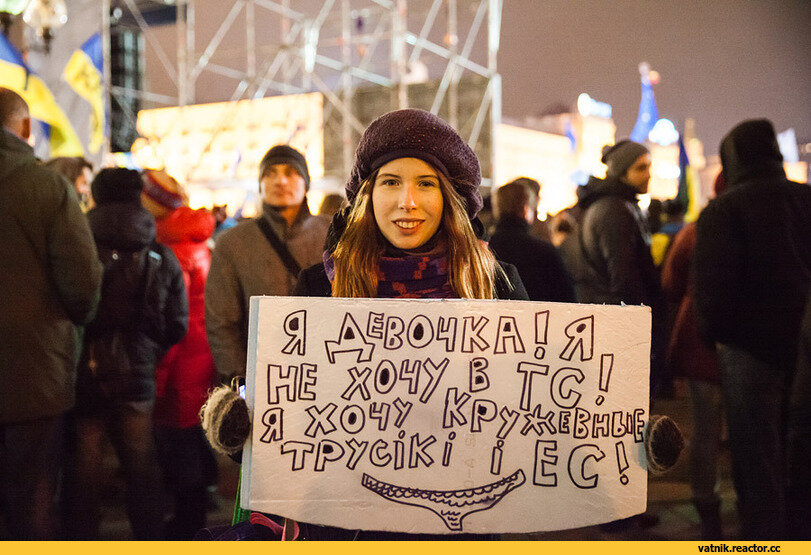 Я ДЕВОЧКА! Я
НЕ ХОЧУ В ТС!
Я ХОЧУ КРУЖЕВНЫЕ
ТРУСІКІ І ЕС!
vatnik.reactor.cc